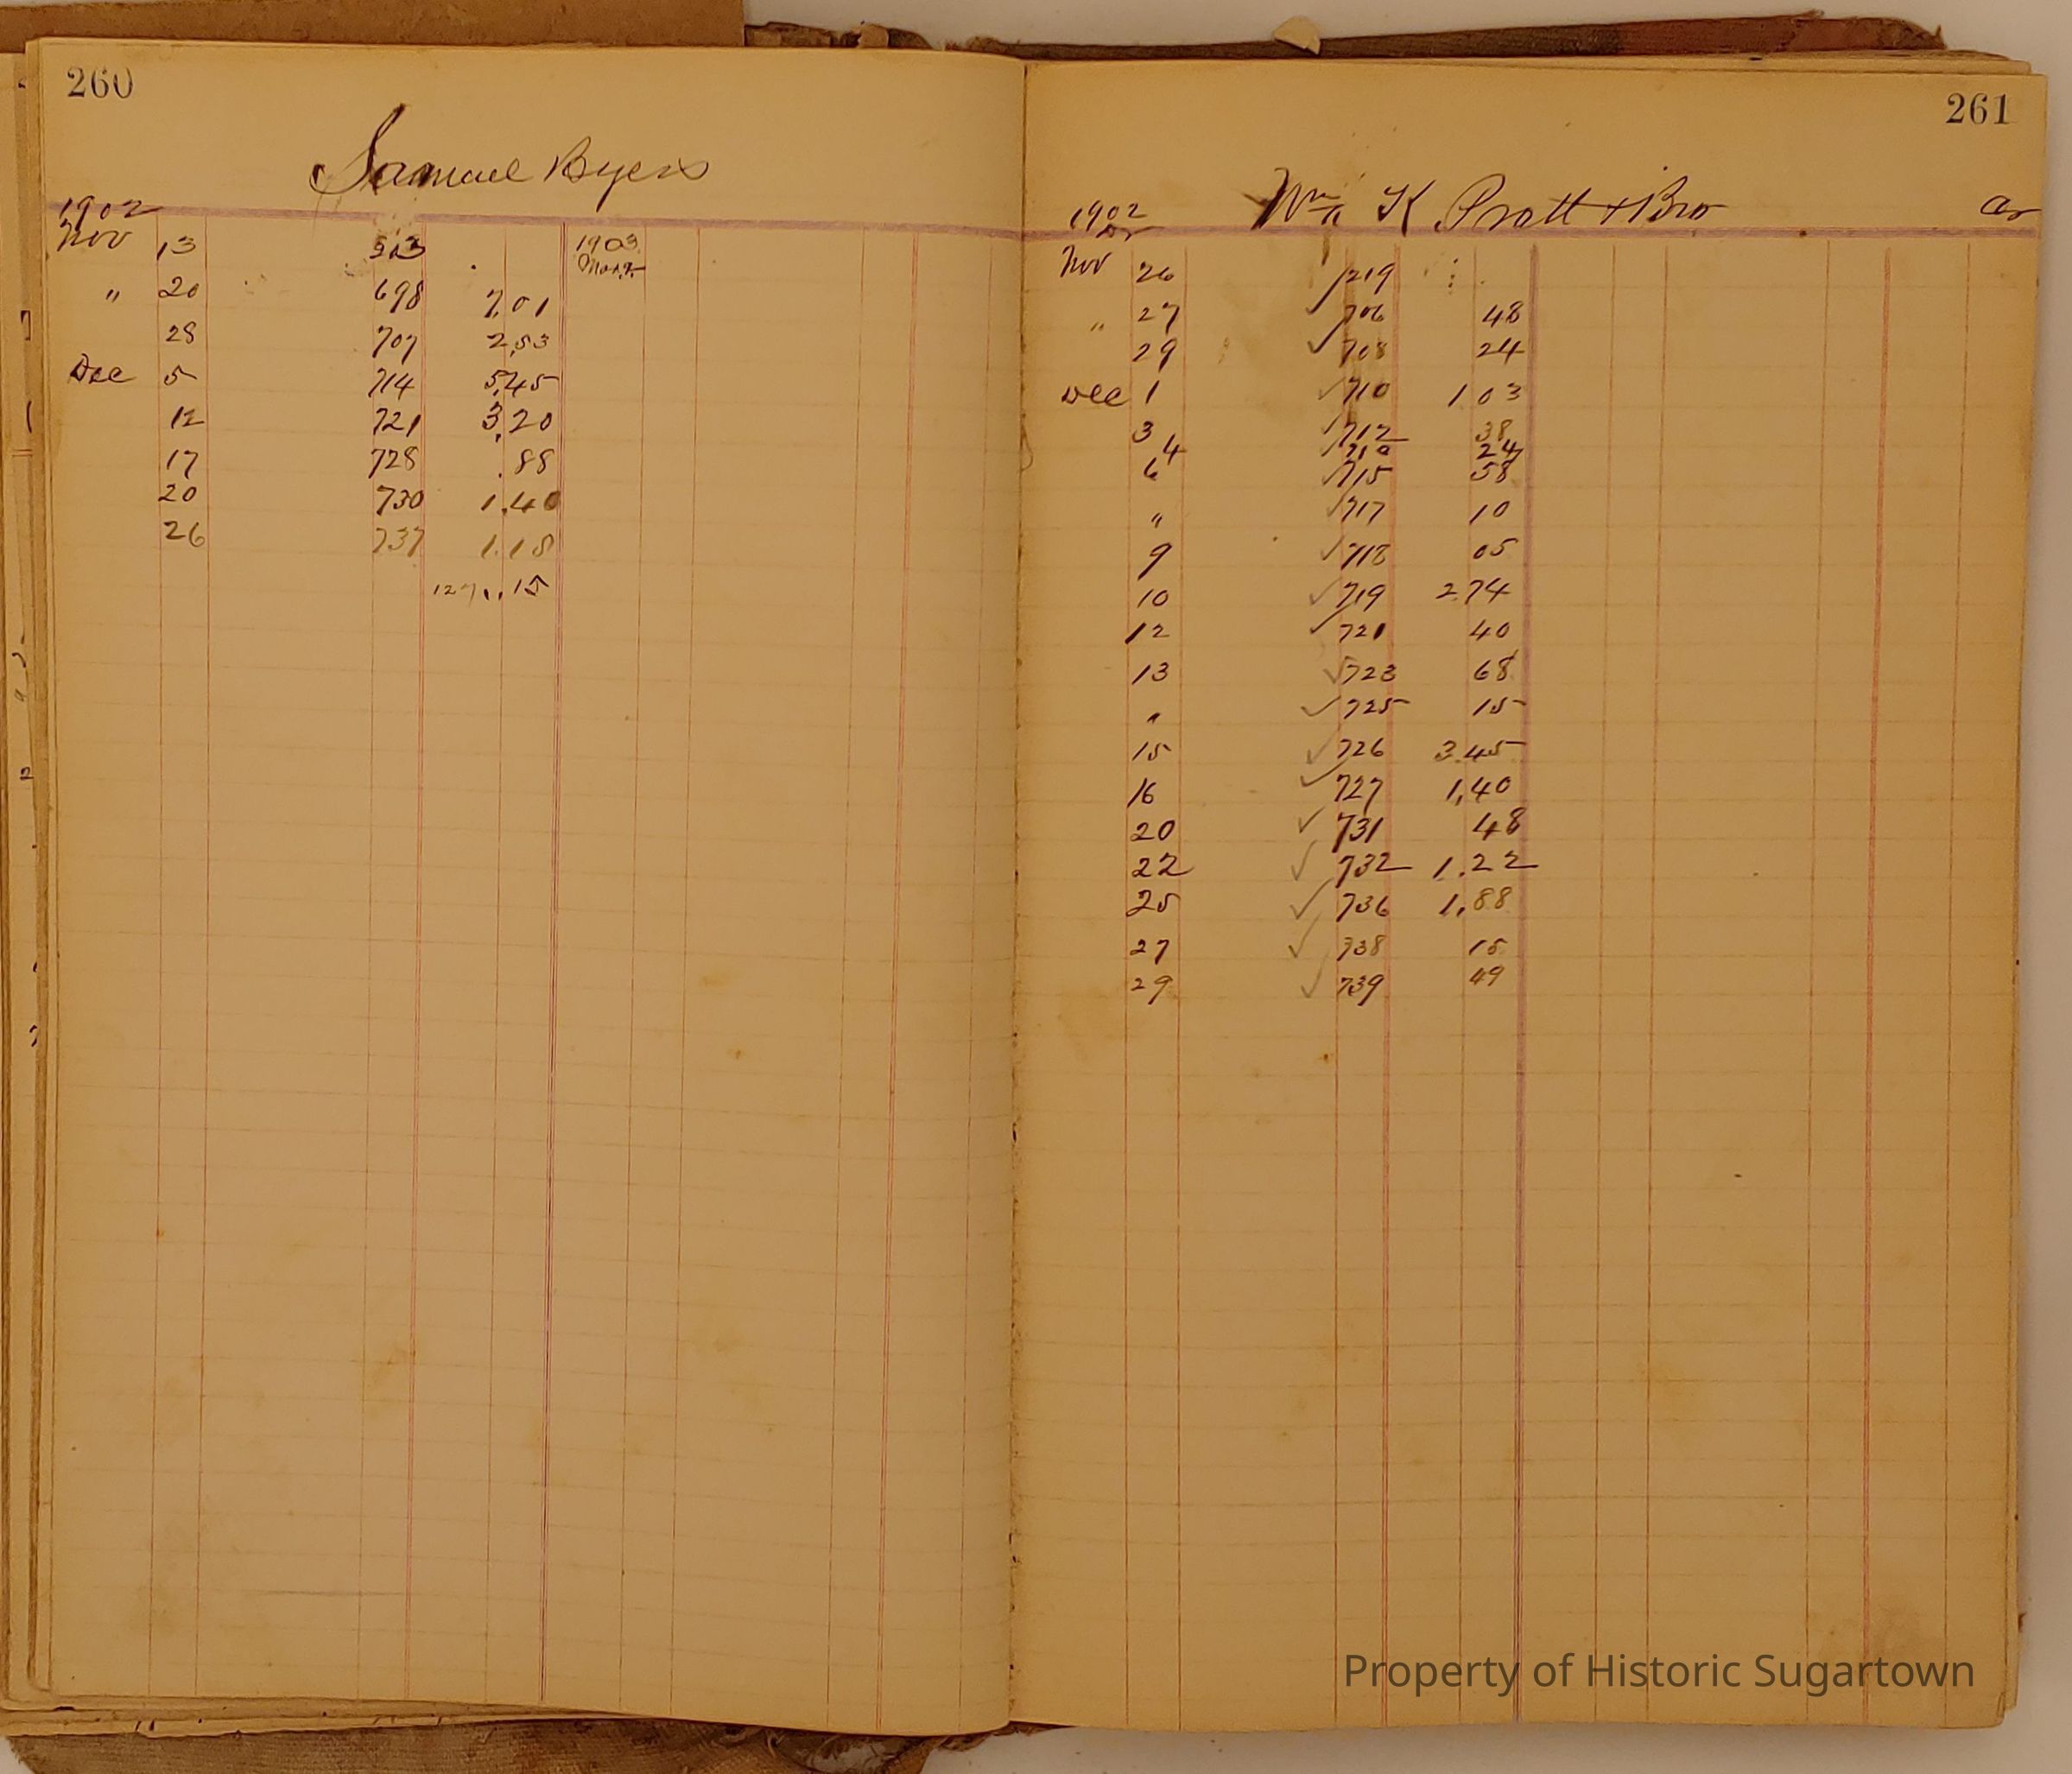 260
Samuel Byers
1902
Nov 13 513 1903
" 20 698 7.01
28 707 2.53
Dec 5 714 5.45
12 721 3.20
17 728 .88
20 730 1.40
26 737 1.18
127.15
261
Wm K Pratt + Bro Cr
1902
Dr
Nov 26 219
" 27 706 48
29 708 24
Dec 1 710 1 03
3 712 38
4 24
6 715 58
" 717 10
9 718 05
10 719 2.74
12 721 40
13 723 68
" 725 15
15 726 3.45
16 727 1,40
20 731 48
22 732 1.22
25 736 1,88
27 738 15
29 739 49
Property of Historic Sugartown